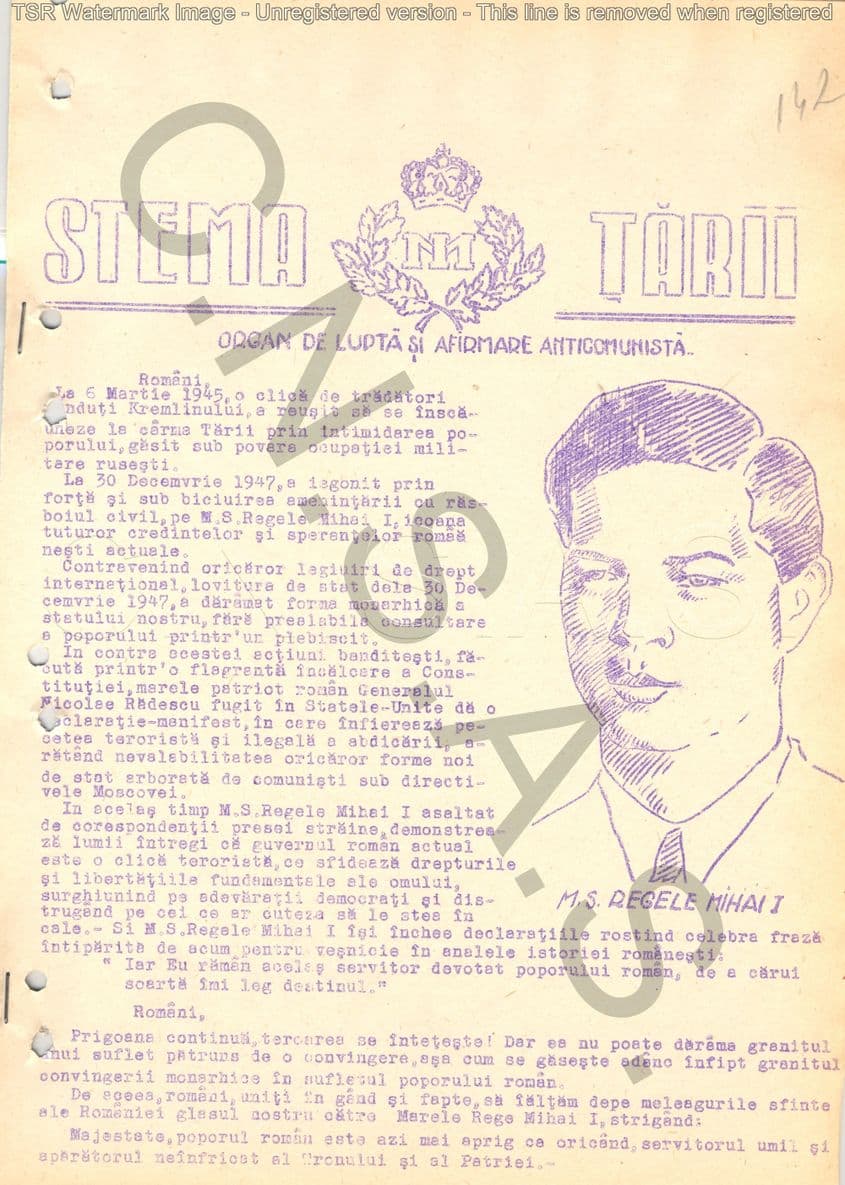 TSR Watermark Image - Unregistered version - This line is removed when registered
142
STEMA ȚĂRII
ORGAN DE LUPTĂ ȘI AFIRMARE ANTICOMUNISTĂ..
Români,
La 6 Martie 1945,o clică de trădători
vânduți Kremlinului,a reușit să se înscă-
uneze la cârma Țării prin intimidarea po-
porului,găsit sub povara ocupației mili-
tare rusești.
La 30 Decemvrie 1947,a isgonit prin
forță și sub biciuirea amenințării cu răs-
boiul civil,pe M.S.Regele Mihai I,icoana
tuturor credintelor și speranțelor româă
nești actuale.
Contravenind oricăror legiuiri de drept
internațional,lovitura de stat dela 30 De-
cemvrie 1947,a dărâmat forma monarhică a
statului nostru,fără prealabila consultare
a poporului printr'un plebiscit.
In contra acestei acțiuni banditești,fă-
cută printr'o flagrantă încălcare a Cons-
tituției,marele patriot român Generalul
Nicolae Rădescu fugit în Statele-Unite dă o
declarație-manifest,în care înfierează pe-
cetea teroristă și ilegală a abdicării, a-
rătând nevalabilitatea oricăror forme noi
de stat arborată de comuniști sub directi-
vele Moscovei.
In acelaș timp M.S.Regele Mihai I asaltat
de corespondenții presei străine,demonstrea-
ză lumii întregi că guvernul român actual
este o clică teroristă,ce sfidează drepturile
și libertățiile fundamentale ale omului,
surghiunind pe adevărații democrați și dis-
trugând pe cei ce ar cuteza să le stea în
cale.- Si M.S.Regele Mihai I își închee declarațiile rostind celebra frază
întipărită de acum pentru veșnicie în analele istoriei românești:
" Iar Eu rămân acelaș servitor devotat poporului român, de a cărui
soartă îmi leg destinul."
M.S. REGELE MIHAI I
Români,
Prigoana continuă,teroarea se întețește! Dar ea nu poate dărâma granitul
unui suflet pătruns de o convingere,așa cum se găsește adânc înfipt granitul
convingerii monarhice în sufletul poporului român.
De aceea,români,uniți în gând și fapte,să îălțăm depe meleagurile sfinte
ale României glasul nostru către Marele Rege Mihai I,strigând:
Majestate,poporul român este azi mai aprig ca oricând,servitorul umil și
apărătorul neînfricat al Tronului și al Patriei.-
C.N.S.A.S.